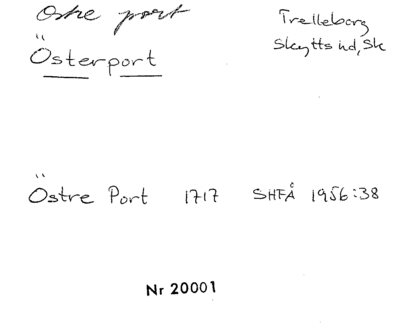 Östre port
Trelleborg
Österport
Skytts hd, Sk
Östre Port 1717 SHFÅ 1956:38
Nr 20001